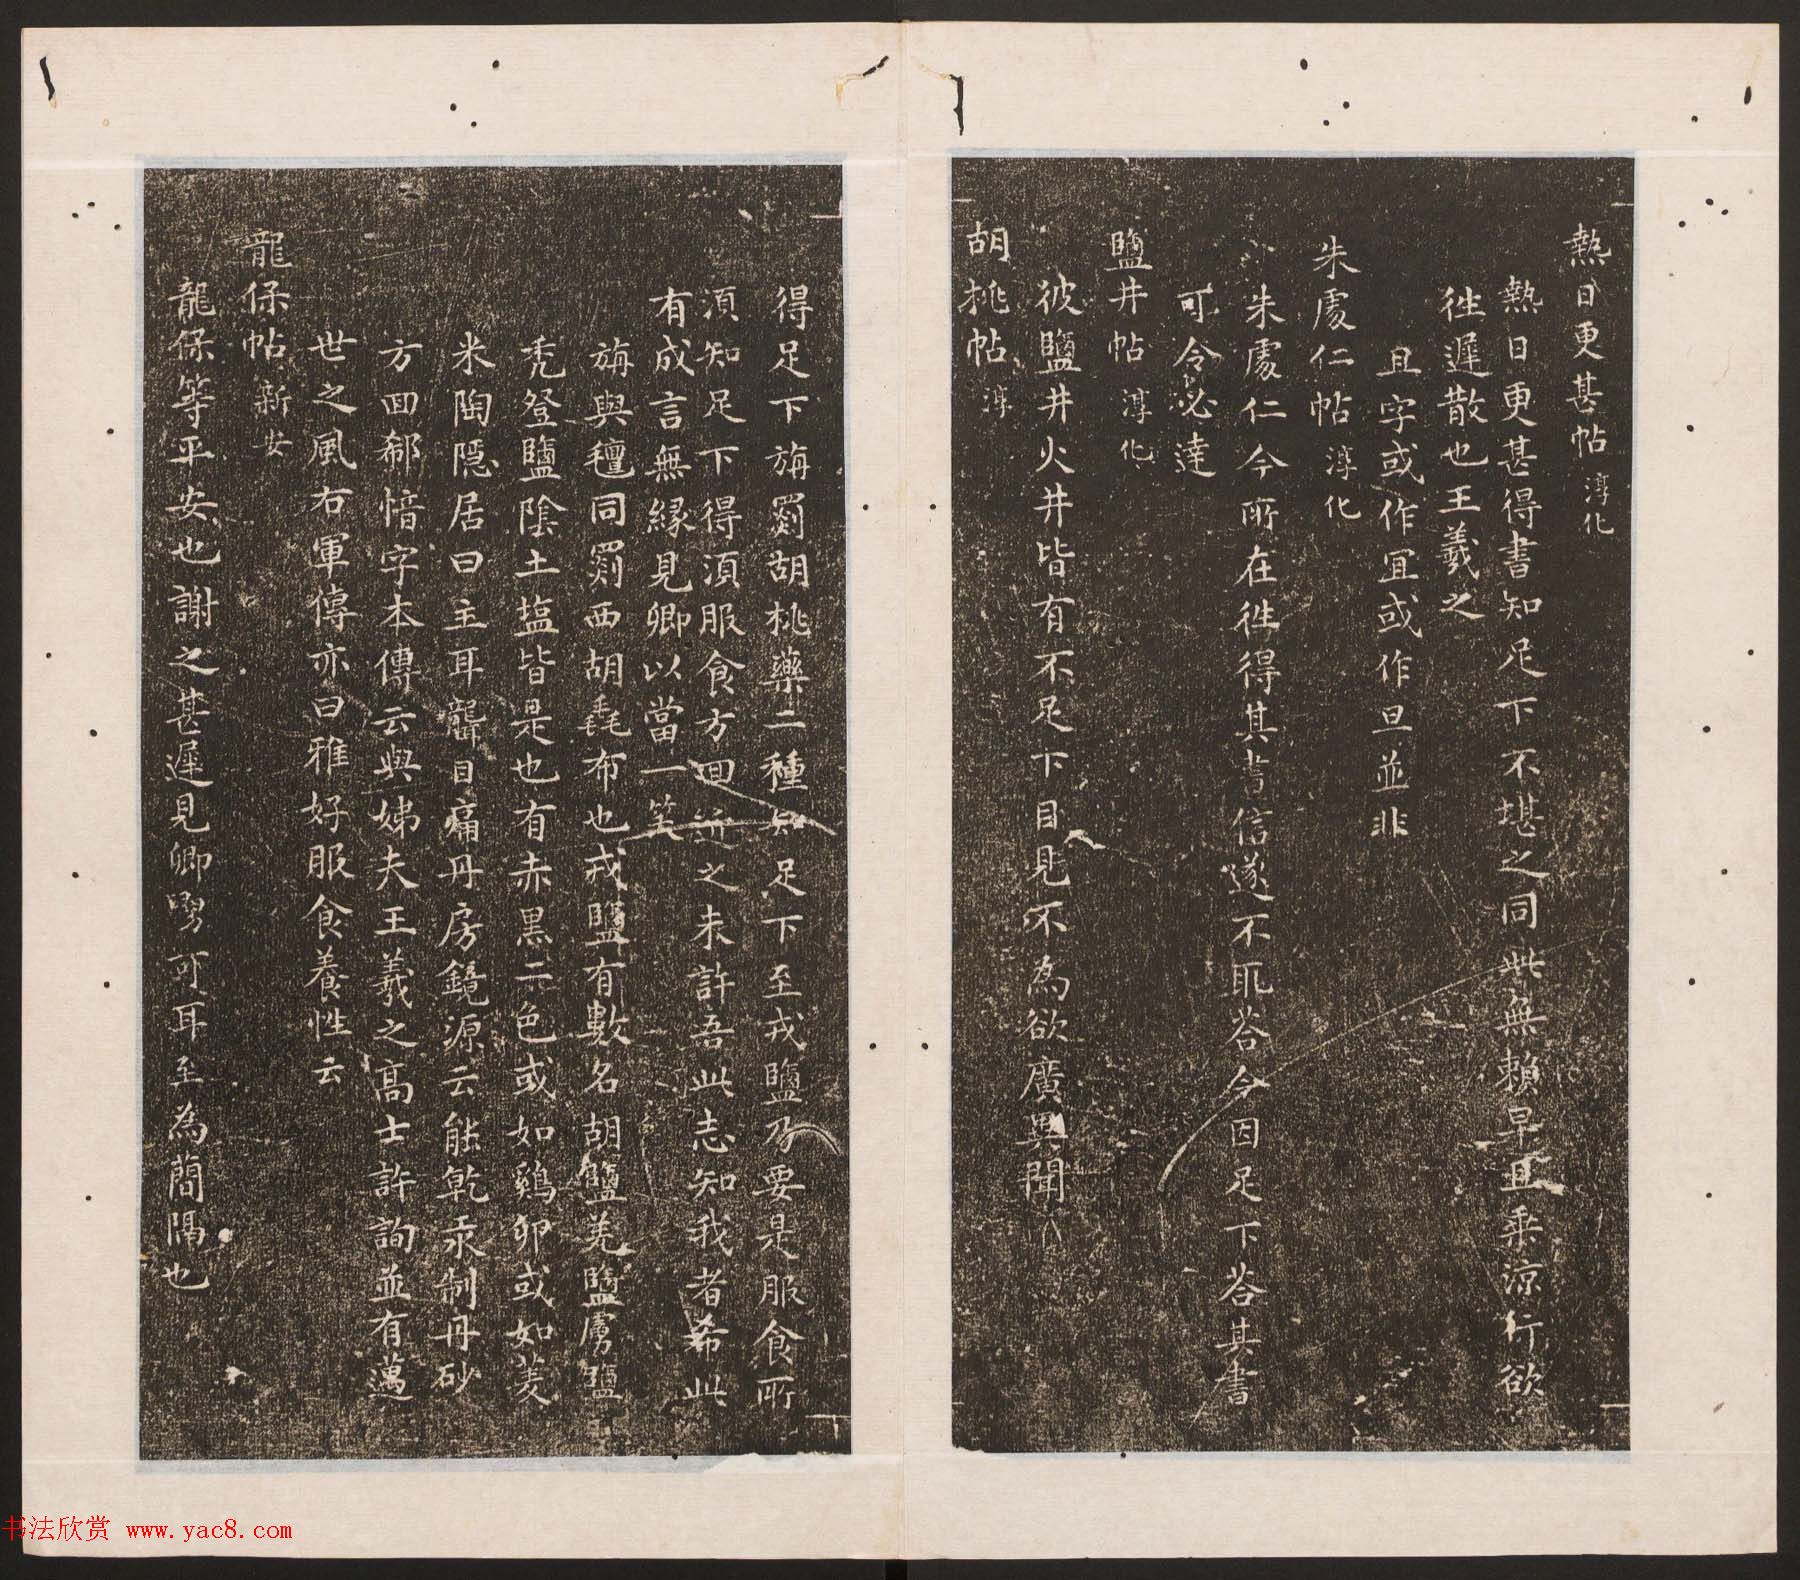 熱日更甚帖 淳化
熱日更甚得書知足下不堪之同此無賴早且乘涼行欲
往遲散也王羲之
且字或作宜或作旦並非
朱處仁帖 淳化
朱處仁今所在往得其書信遂不取荅今因足下荅其書
可令必達
鹽井帖 淳化
彼鹽井火井皆有不足下目見不為欲廣異聞
胡桃帖 淳
得足下旃罽胡桃藥二種知足下至戎鹽乃要是服食所
須知足下得須服食方回近之未許吾此志知我者希此
有成言無緣見卿以當一笑
旃與氊同罽西胡毳布也戎鹽有數名胡鹽羌鹽虜鹽
禿登鹽陰土塩皆是也有赤黑二色或如鷄卵或如菱
米陶隱居曰主耳聾目痛丹房鏡源云能乾汞制丹砂
方回郗愔字本傳云與姊夫王羲之高士許詢並有邁
世之風右軍傳亦曰雅好服食養性云
龍保帖 新安
龍保等平安也謝之甚遲見卿舅可耳至為簡隔也
书法欣赏 www.yac8.com